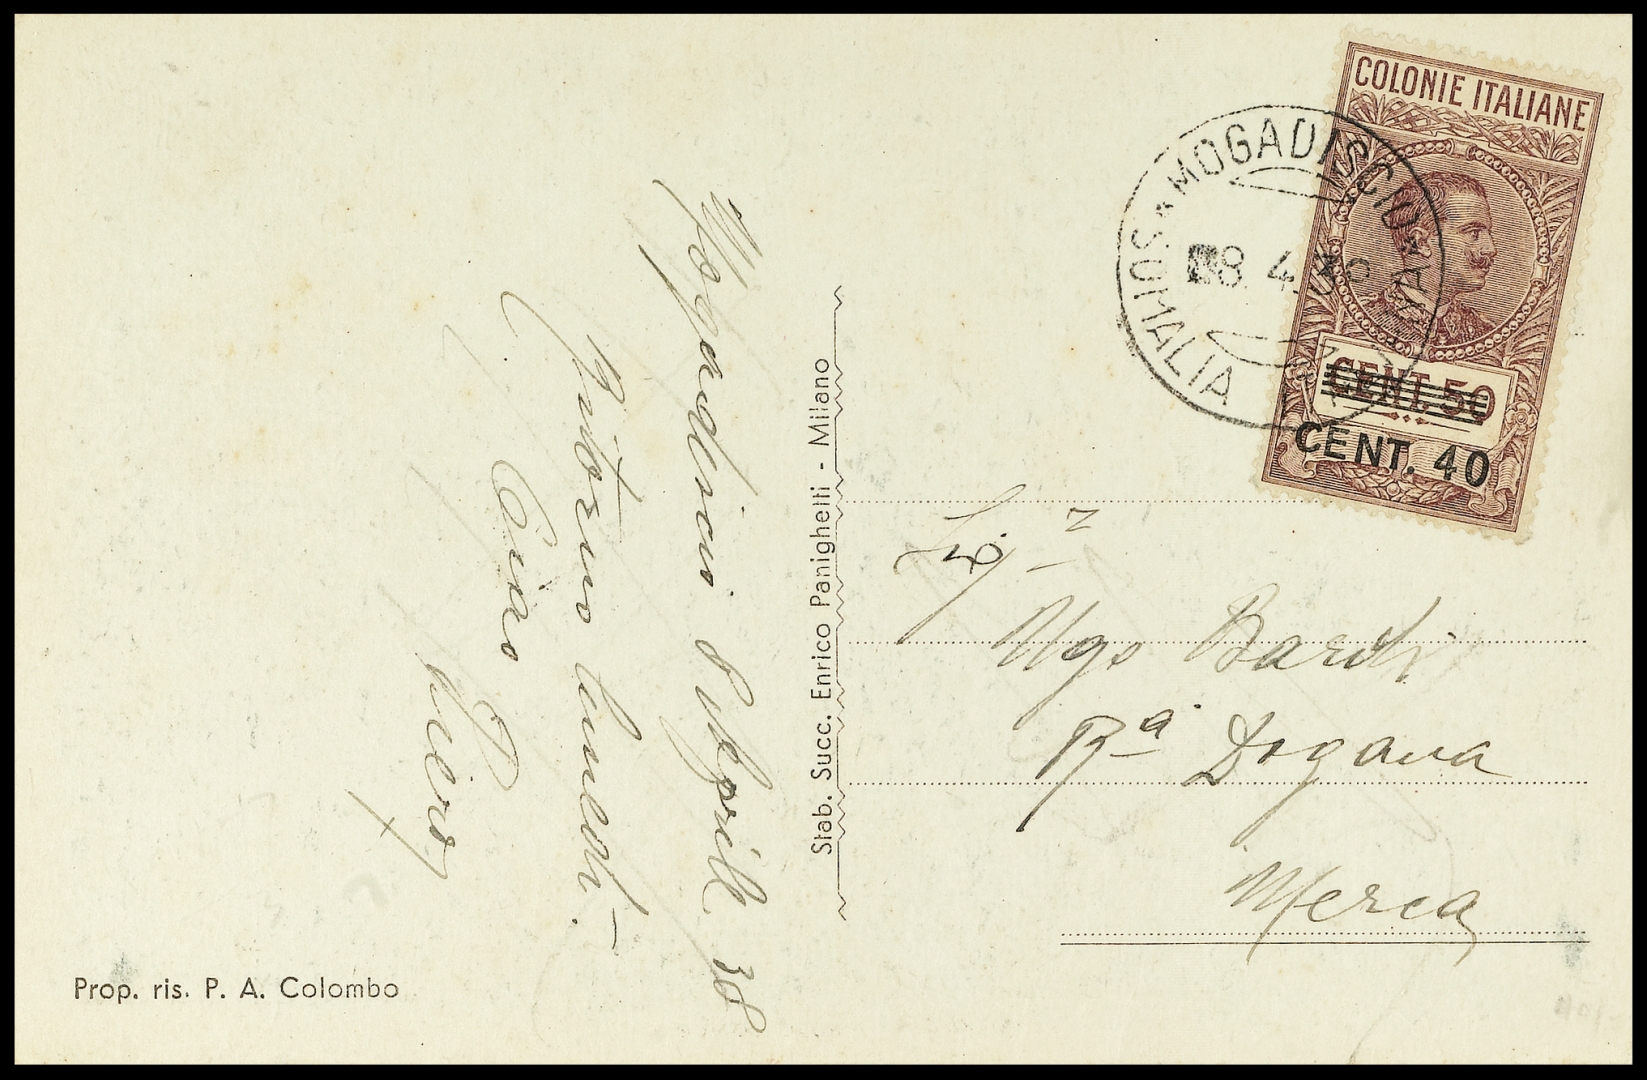 Mogadiscio 8 Aprill 38
Ritorno lunedi. –
Ciao
Piero
Prop. ris. P. A. Colombo
Stab. Succ. Enrico Panighetti - Milano
COLONIE ITALIANE
CENT. 50
CENT. 40
* MOGADISCIO *
SOMALIA
8. 4. 38
Sig r
Ugo Bardi
Rª Dogana
Merca